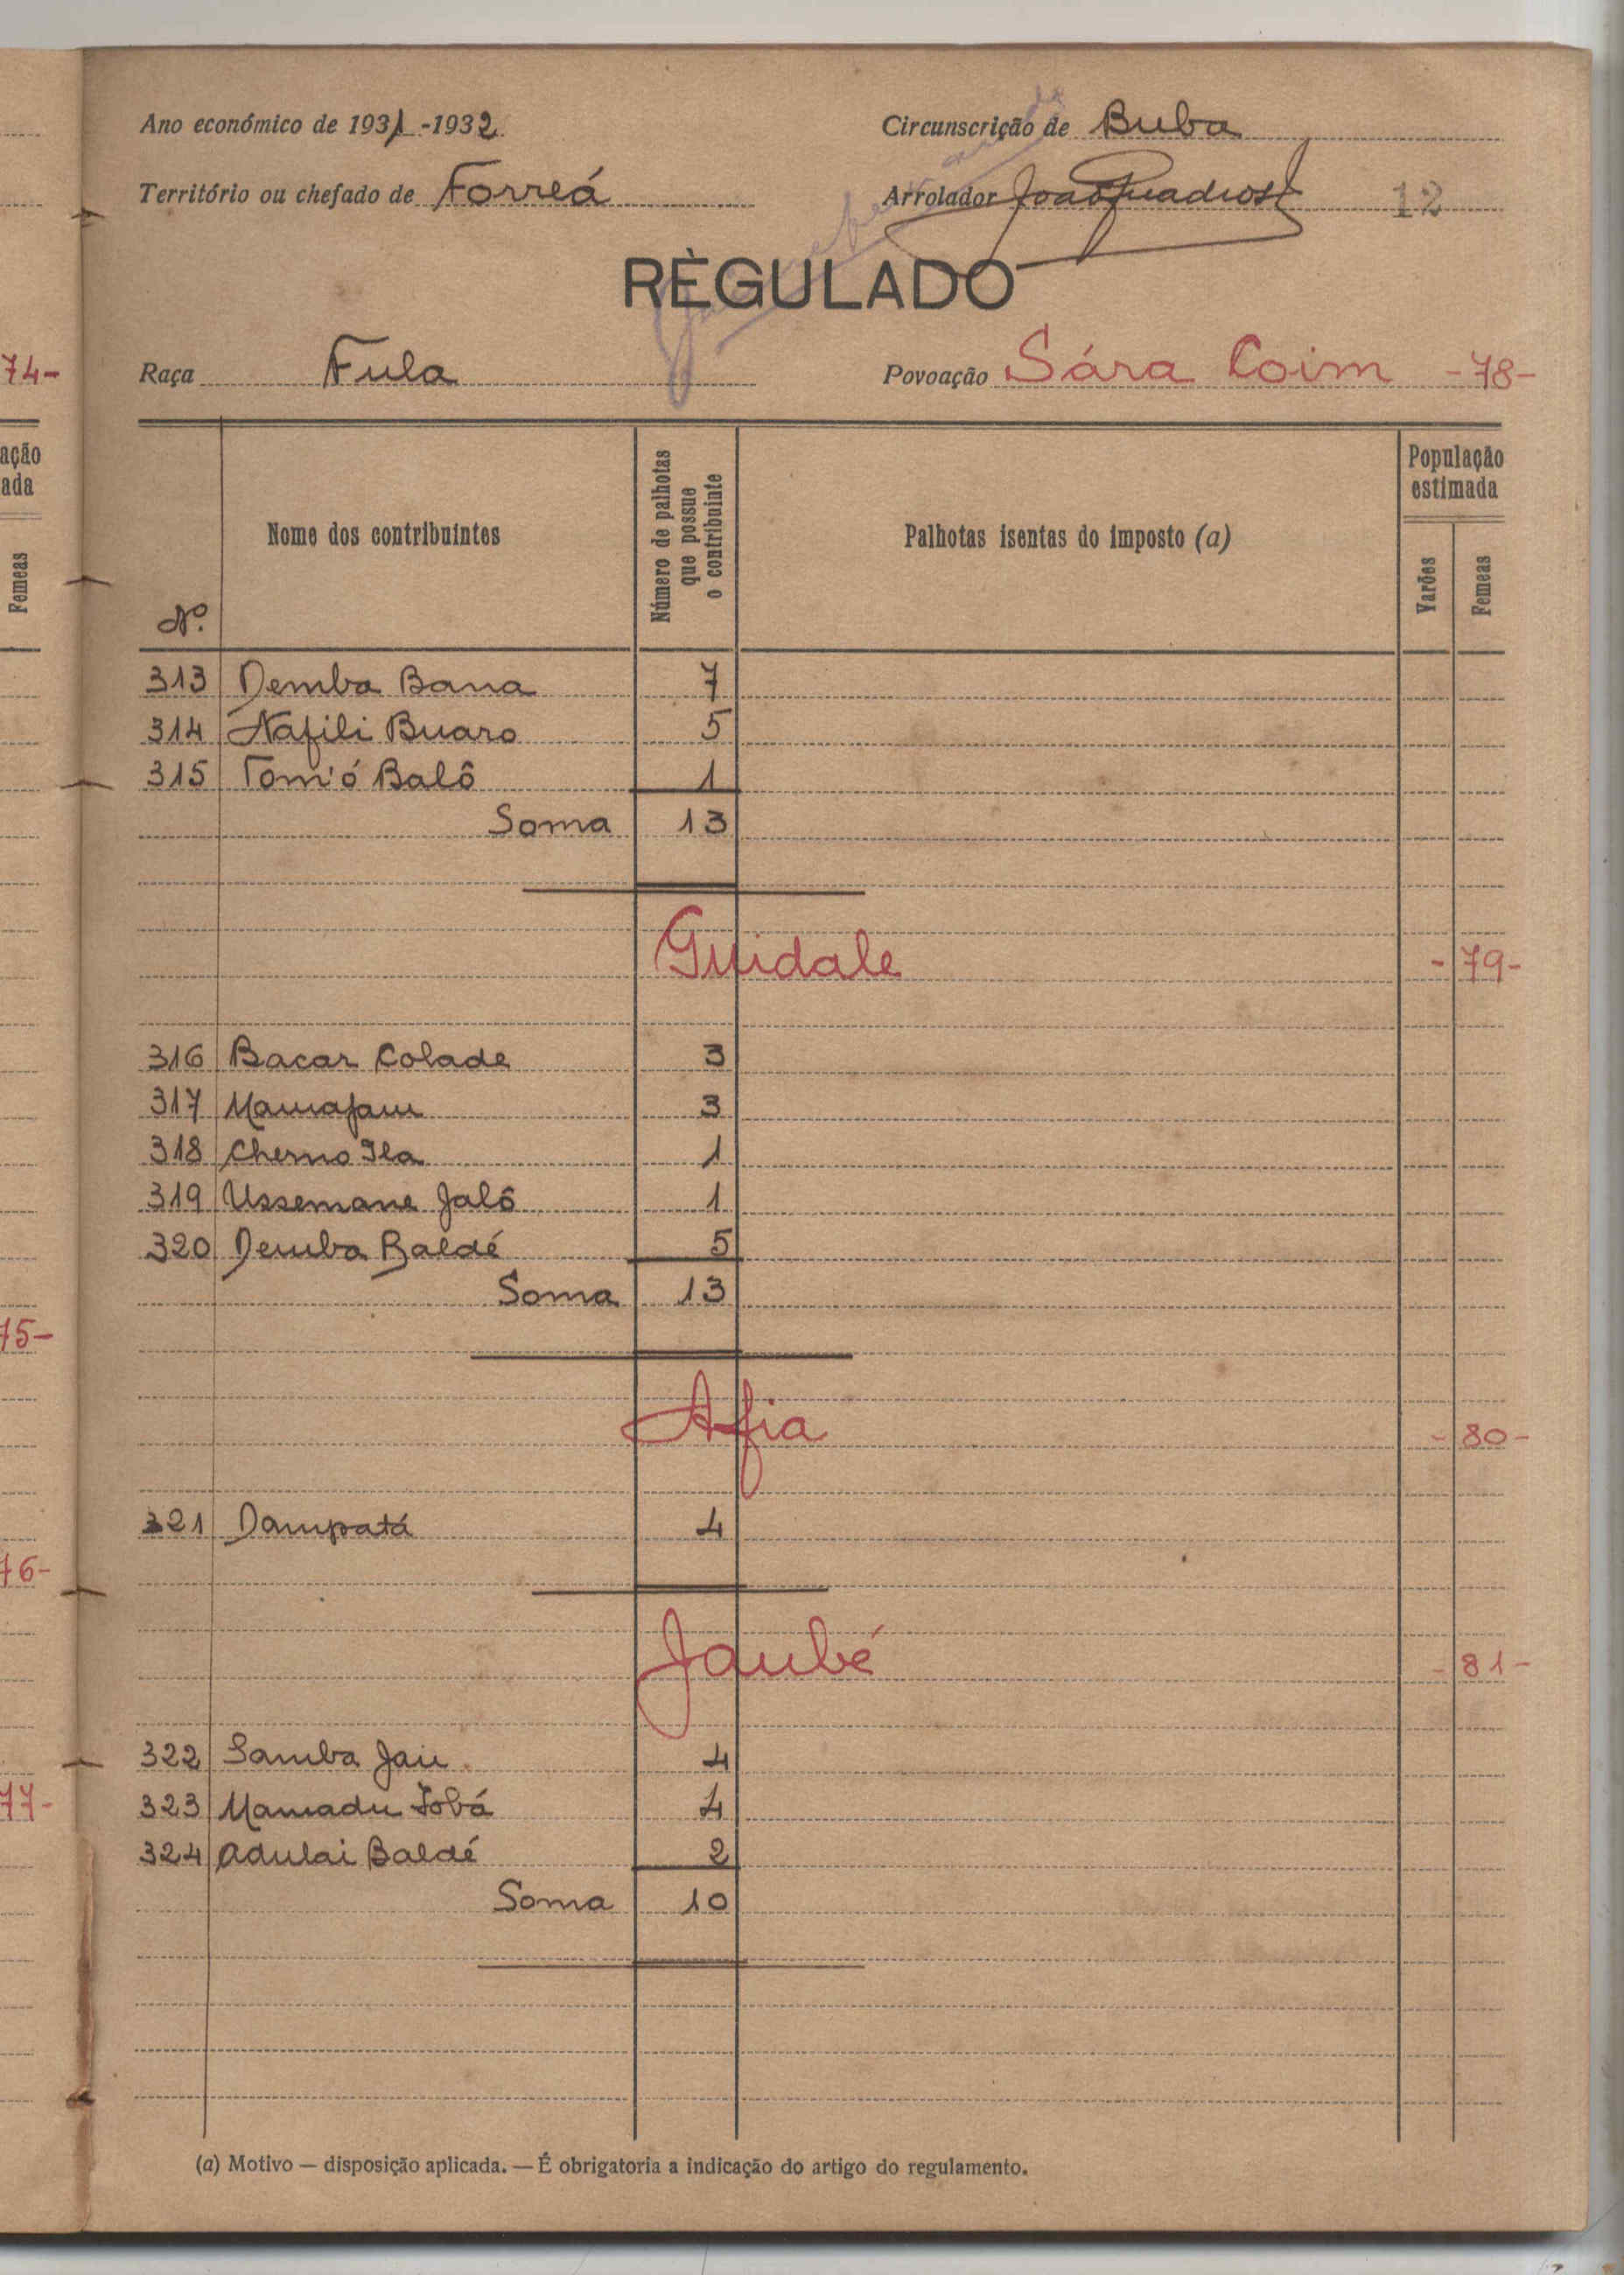 Ano económico de 1931-1932
Circunscrição de Buba
Território ou chefado de Forreá
Arrolador João Quadros
12
RÈGULADO
Raça Fula
Povoação Sára Coim -78-
74-
Nº.
Nome dos contribuintes
Número de palhotas que possue o contribuinte
Palhotas isentas do imposto (a)
População estimada
Varões
Femeas
ação
ada
Femeas
313 Demba Bana 7
314 Nafili Buaro 5
315 Tom'ó Balô 1
Soma 13
Guidale -79-
316 Bacar Colade 3
317 Mamajam 3
318 Cherno Ila 1
319 Ussemane Jalô 1
320 Demba Baldé 5
Soma 13
75-
Afia -80-
321 Dampatá 4
76-
Jaubé -81-
322 Samba Jau 4
323 Mamadu Jobá 4
77-
324 Adulai Baldé 2
Soma 10
(a) Motivo — disposição aplicada. — É obrigatoria a indicação do artigo do regulamento.